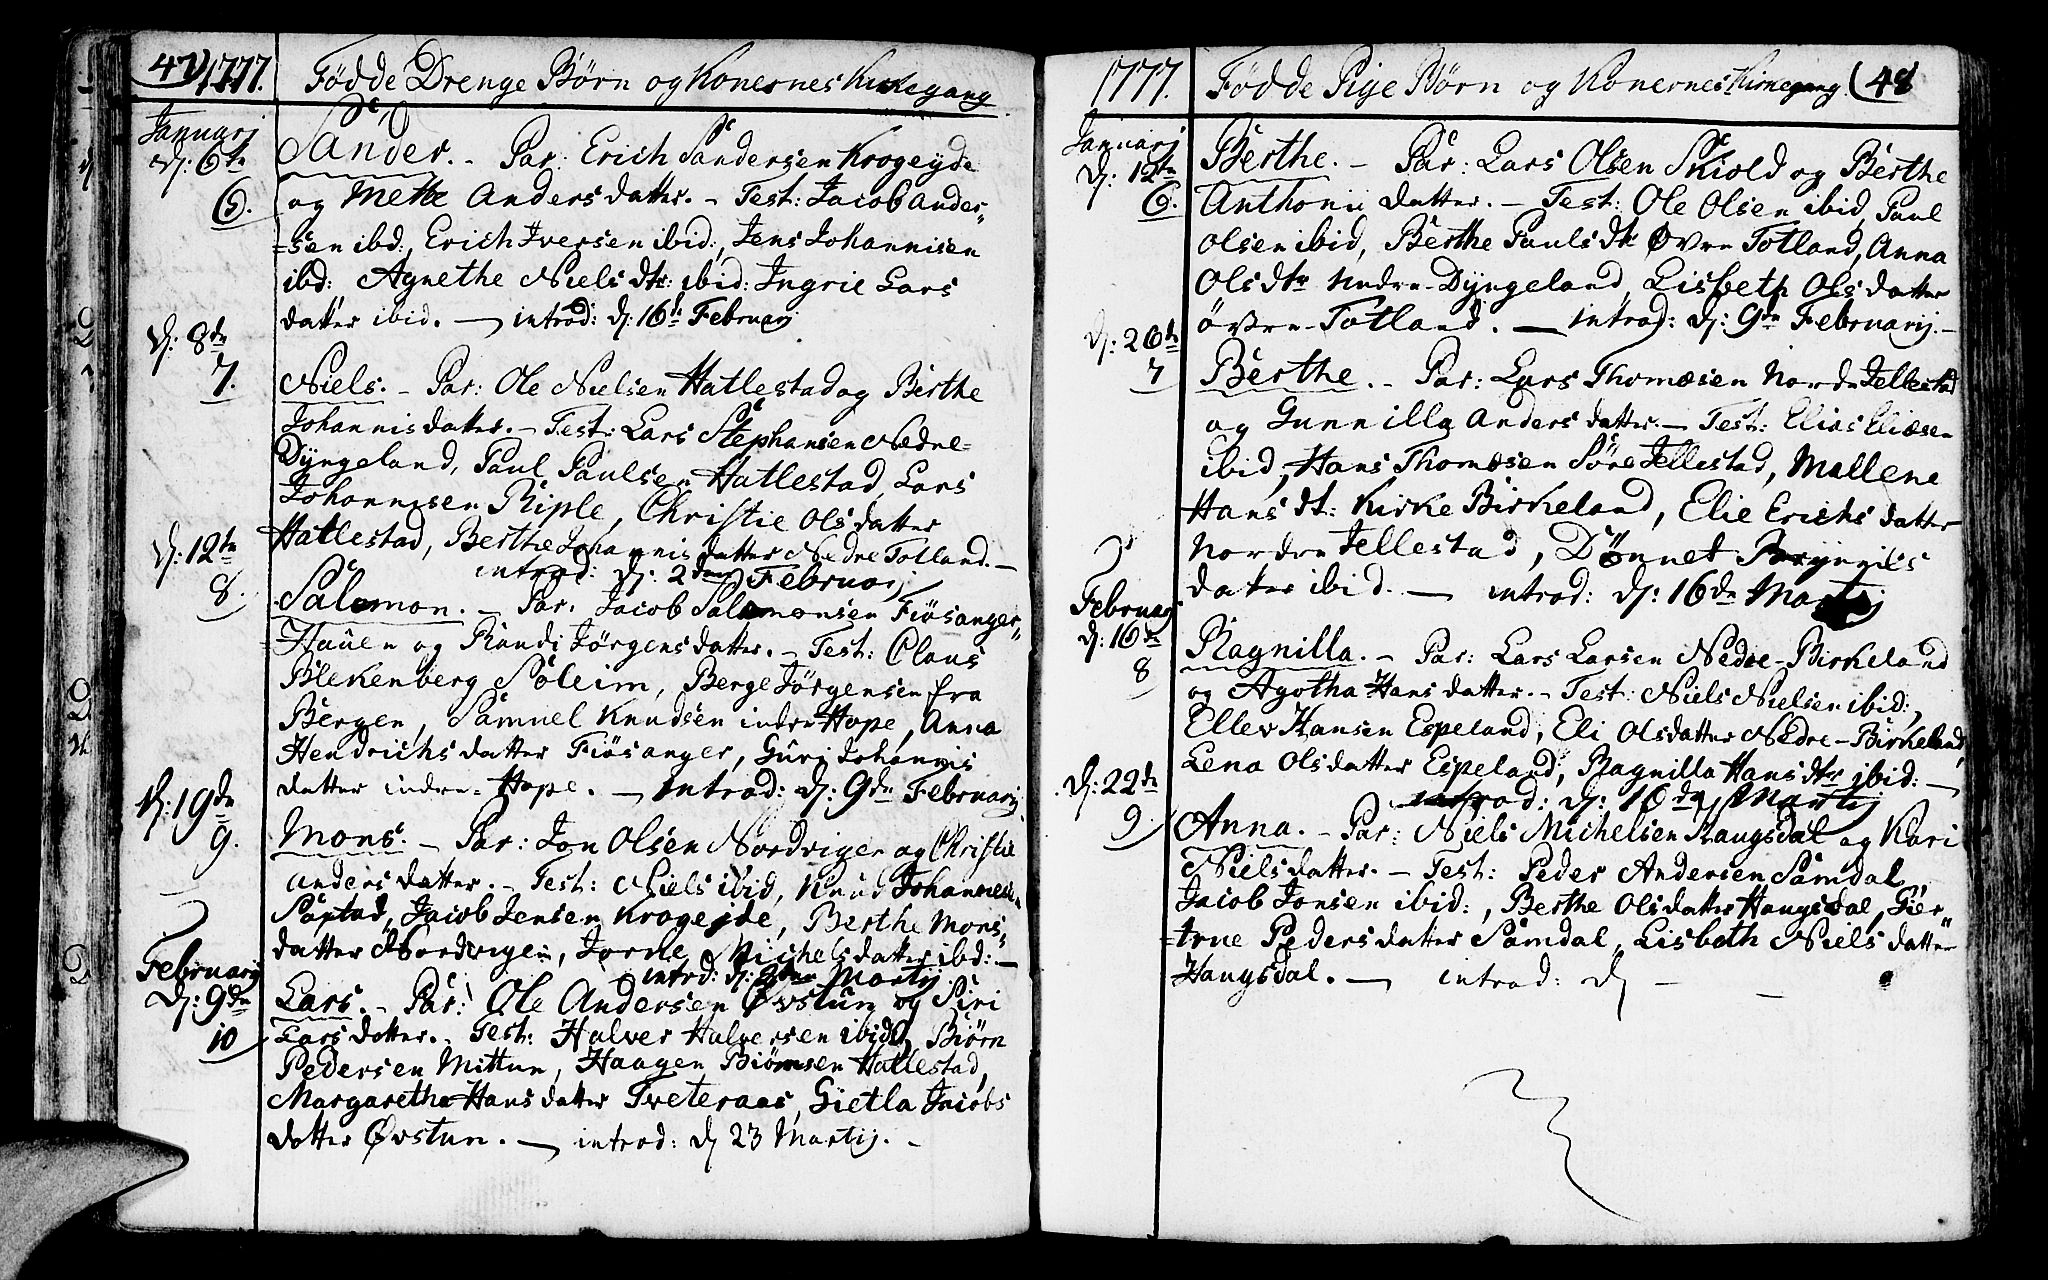 47) 1777. Fødde Drenge Børn og Konernes Kirkegang
Januarj
d: 6te Sander. - Par: Erich Sandersen Krogeyde
6. og Mette Anders datter. - Test: Jacob Ander-
sen ibd:, Erich Iversen ibid:, Jens Johannisen
ibd: Agnethe Niels dtr: ibid: Ingrie Lars
datter ibid. - introd: d: 16de Februarj
d: 8de
7. Niels. - Par: Ole Nielsen Hatlestad og Berthe
Johannisdatter. - Test: Lars Stephansen Nedre-
Dyngeland, Paul Paulsen Hatlestad, Lars
Johannisen Riple, Christie Olsdatter
d: 12te Hatlestad, Berthe Johannisdatter Nedre Totland. -
introd: d: 2den Februarj
8. Salomon. - Par: Jacob Salomonsen Fiøsanger-
Hauen og Randi Jørgensdatter. - Test: Claus
Blekenberg Søleim, Berge Jørgensen fra
Bergen, Samuel Knudsen indre Hope, Anna
Hendrichsdatter Fiøsanger, Guri Johannis
datter indre-Hope. - Introd: d: 9de Februarij
d: 19de
9. Mons. - Par: Jon Olsen Nordvigen og Christie
Anders datter. - Test: Niels ibid, Knud Johannesen
Søxtad, Jacob Jensen Krogeyde, Berthe Mons-
datter Nordvigen, Michelsdatter ibd: -
introd: d: Martij
Februarij
d: 9de Lars. - Par: Ole Andersen Øvstun og Siri
10 Larsdatter. - Test: Halver Halversen ibid, Biørn
Pedersen Mittun, Haagen Biørnsen Hatlestad,
Margarethe Hansdatter Tveteraas, Gietla Jacobs
datter Øvstun. - introd: d 23 Martij. -
1777. Fødde Pige Børn og Konernes Kirkegang (48
Januarj
d: 12te Berthe. - Par: Lars Olsen Skiold og Berthe
6. Anthonii datter. - Test: Ole Olsen ibid, Paul
Olsen ibid, Berthe Pauls dtr Øvre Totland, Anna
Olsdtr Nedre-Dyngeland, Lisbeth Olsdatter
øvre-Totland. - introd: d: 9de Februarij. -
d: 26de
7 Berthe. - Par: Lars Thomæsen Nordre Jellestad
og Gunnilla Anders datter. - Test: Elias Eliæsen
ibid, Hans Thomæsen Søre Jellestad, Mallene
Hans dt: Kirke Birkeland, Elie Erichs datter
Nordre Jellestad, Dønnet
datter ibid. - introd: d: 16de Martij
Februarj
d: 16de Ragnilla. - Par: Lars Larsen Nedre-Birkeland
8 og Agotha Hansdatter. - Test: Niels Nielsen ibid:,
Ellev Hansen Espeland, Eli Olsdatter Nedre-Birkeland,
Lena Olsdatter Espeland, Ragnilla Hansdtr ibid: -
introd: d: 16de Martij
d: 22de
9. Anna. - Par: Niels Michelsen Haugsdal og Kari
Nielsdatter. - Test: Peder Andersen Samdal,
Jacob Jonsen ibid:, Berthe Olsdatter Haugsdal, Gier-
true Pedersdatter Samdal, Lisbeth Nielsdatter
Haugsdal. - introd: d -